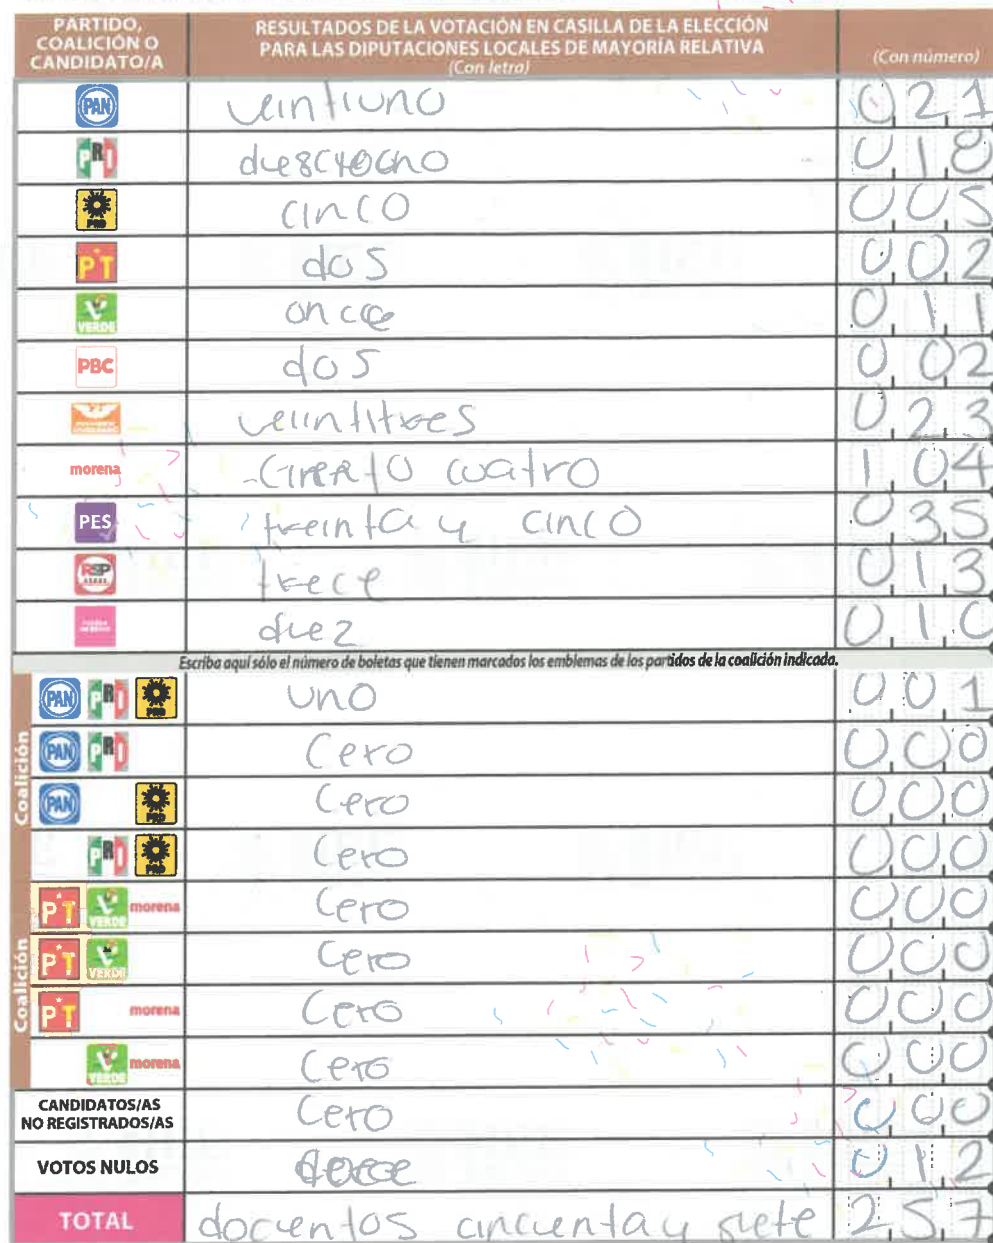 PARTIDO, COALICIÓN O CANDIDATO/A
RESULTADOS DE LA VOTACIÓN EN CASILLA DE LA ELECCIÓN PARA LAS DIPUTACIONES LOCALES DE MAYORÍA RELATIVA
(Con letra)
(Con número)
PAN veintiuno 021
PRI diesciocho 018
PRD cinco 005
PT dos 002
VERDE once 011
PBC dos 002
veiintitres 023
morena Ciento cuatro 104
PES treinta y cinco 035
RSP trece 013
diez 010
Escriba aquí sólo el número de boletas que tienen marcados los emblemas de los partidos de la coalición indicada.
Coalición
PAN PRI PRD uno 001
PAN PRI Cero 000
PAN PRD Cero 000
PRI PRD Cero 000
Coalición
PT VERDE morena Cero 000
PT VERDE Cero 000
PT morena Cero 000
VERDE morena Cero 000
CANDIDATOS/AS NO REGISTRADOS/AS Cero 000
VOTOS NULOS doce 012
TOTAL docientos cincuenta y siete 257